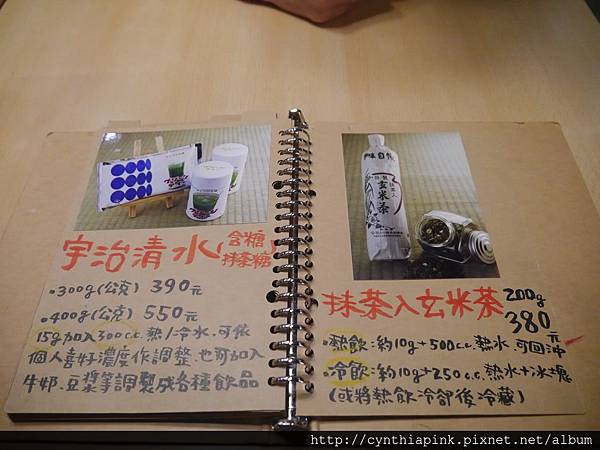 宇治清水(含糖
抹茶糖)
•300g(公克) 390元
•400g(公克) 550元
15g加入300c.c.熱/冷水.可依
個人喜好濃度作調整.也可加入
牛奶.豆漿等調製成各種飲品
玄米茶
抹茶入玄米茶 200g
380元
•熱飲:約10g+500c.c.熱水 可回沖
•冷飲:約10g+250c.c.熱水+冰塊
(或將熱飲冷卻後冷藏)
http://cynthiapink.pixnet.net/album